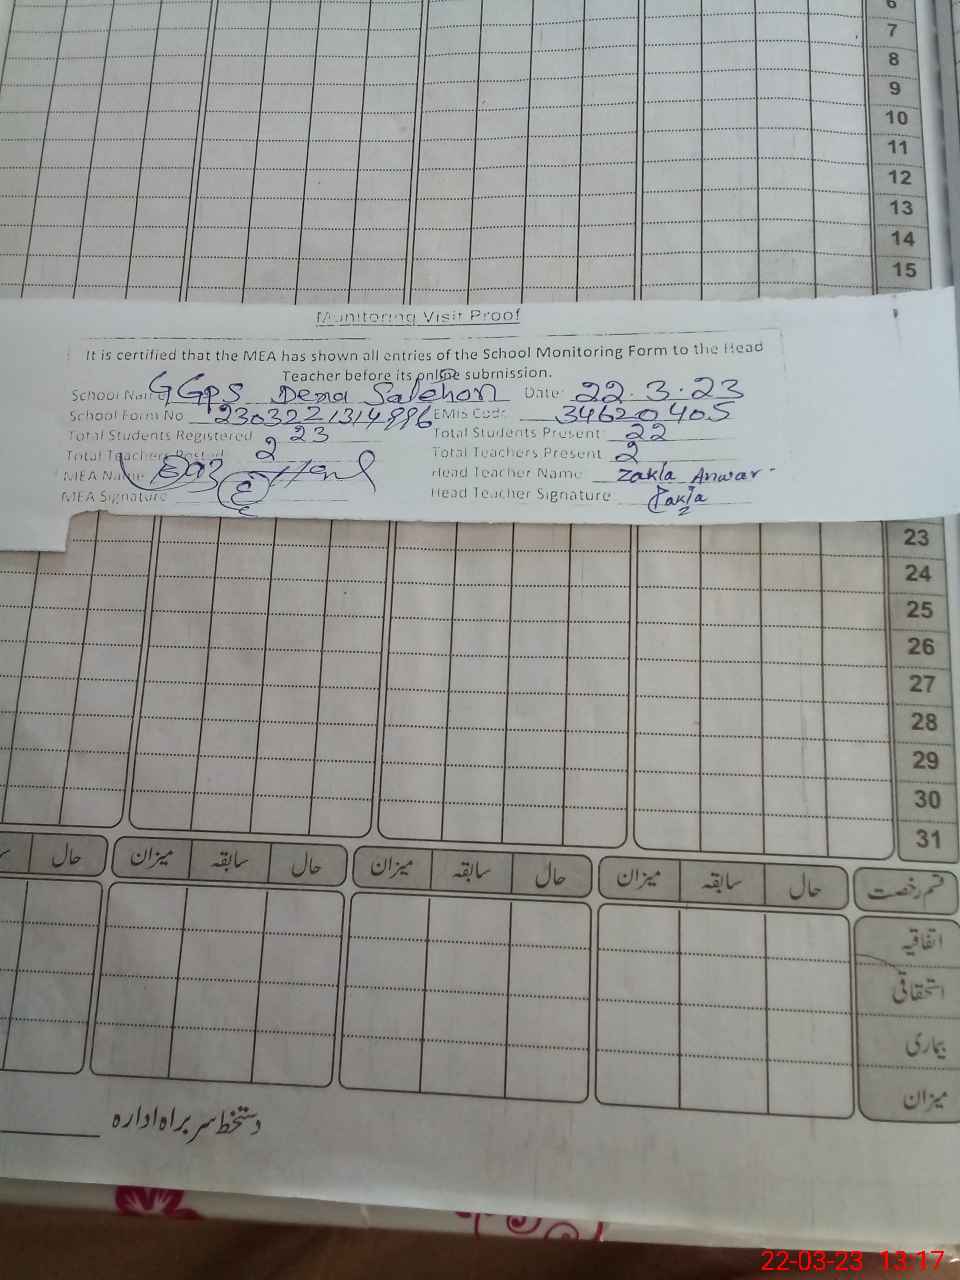 6
7
8
9
10
11
12
13
14
15
Monitoring Visit Proof
It is certified that the MEA has shown all entries of the School Monitoring Form to the Head
Teacher before its online submission.
School Name GGPS Dera Salehon Date: 22.3.23
School Form No. 2303221314996 EMIS Code 34620405
Total Students Registered 23 Total Students Present 22
Total Teachers Posted 2 Total Teachers Present 2
MEA Name Head Teacher Name Zakia Anwar
MEA Signature Head Teacher Signature Zakia
23
24
25
26
27
28
29
30
31
قسم رخصت حال سابقہ میزان حال سابقہ میزان حال سابقہ میزان حال
اتفاقیہ
استحقاقی
بیماری
میزان
دستخط سربراہ ادارہ
22-03-23 13:17